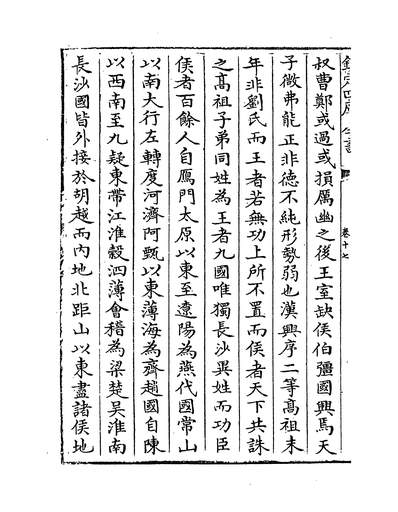 卷十七
叔曹鄭或過或損厲幽之後王室缺侯伯彊國興焉天
子微弗能正非德不純形勢弱也漢興序二等髙祖末
年非劉氏而王者若無功上所不置而侯者天下共誅
之髙祖子弟同姓為王者九國唯獨長沙異姓而功臣
侯者百餘人自鴈門太原以東至遼陽為燕代國常山
以南大行左轉度河濟阿甄以東薄海為齊趙國自陳
以西南至九疑東帶江淮榖泗薄會稽為梁楚吳淮南
長沙國皆外接於胡越而内地北距山以東盡諸侯地